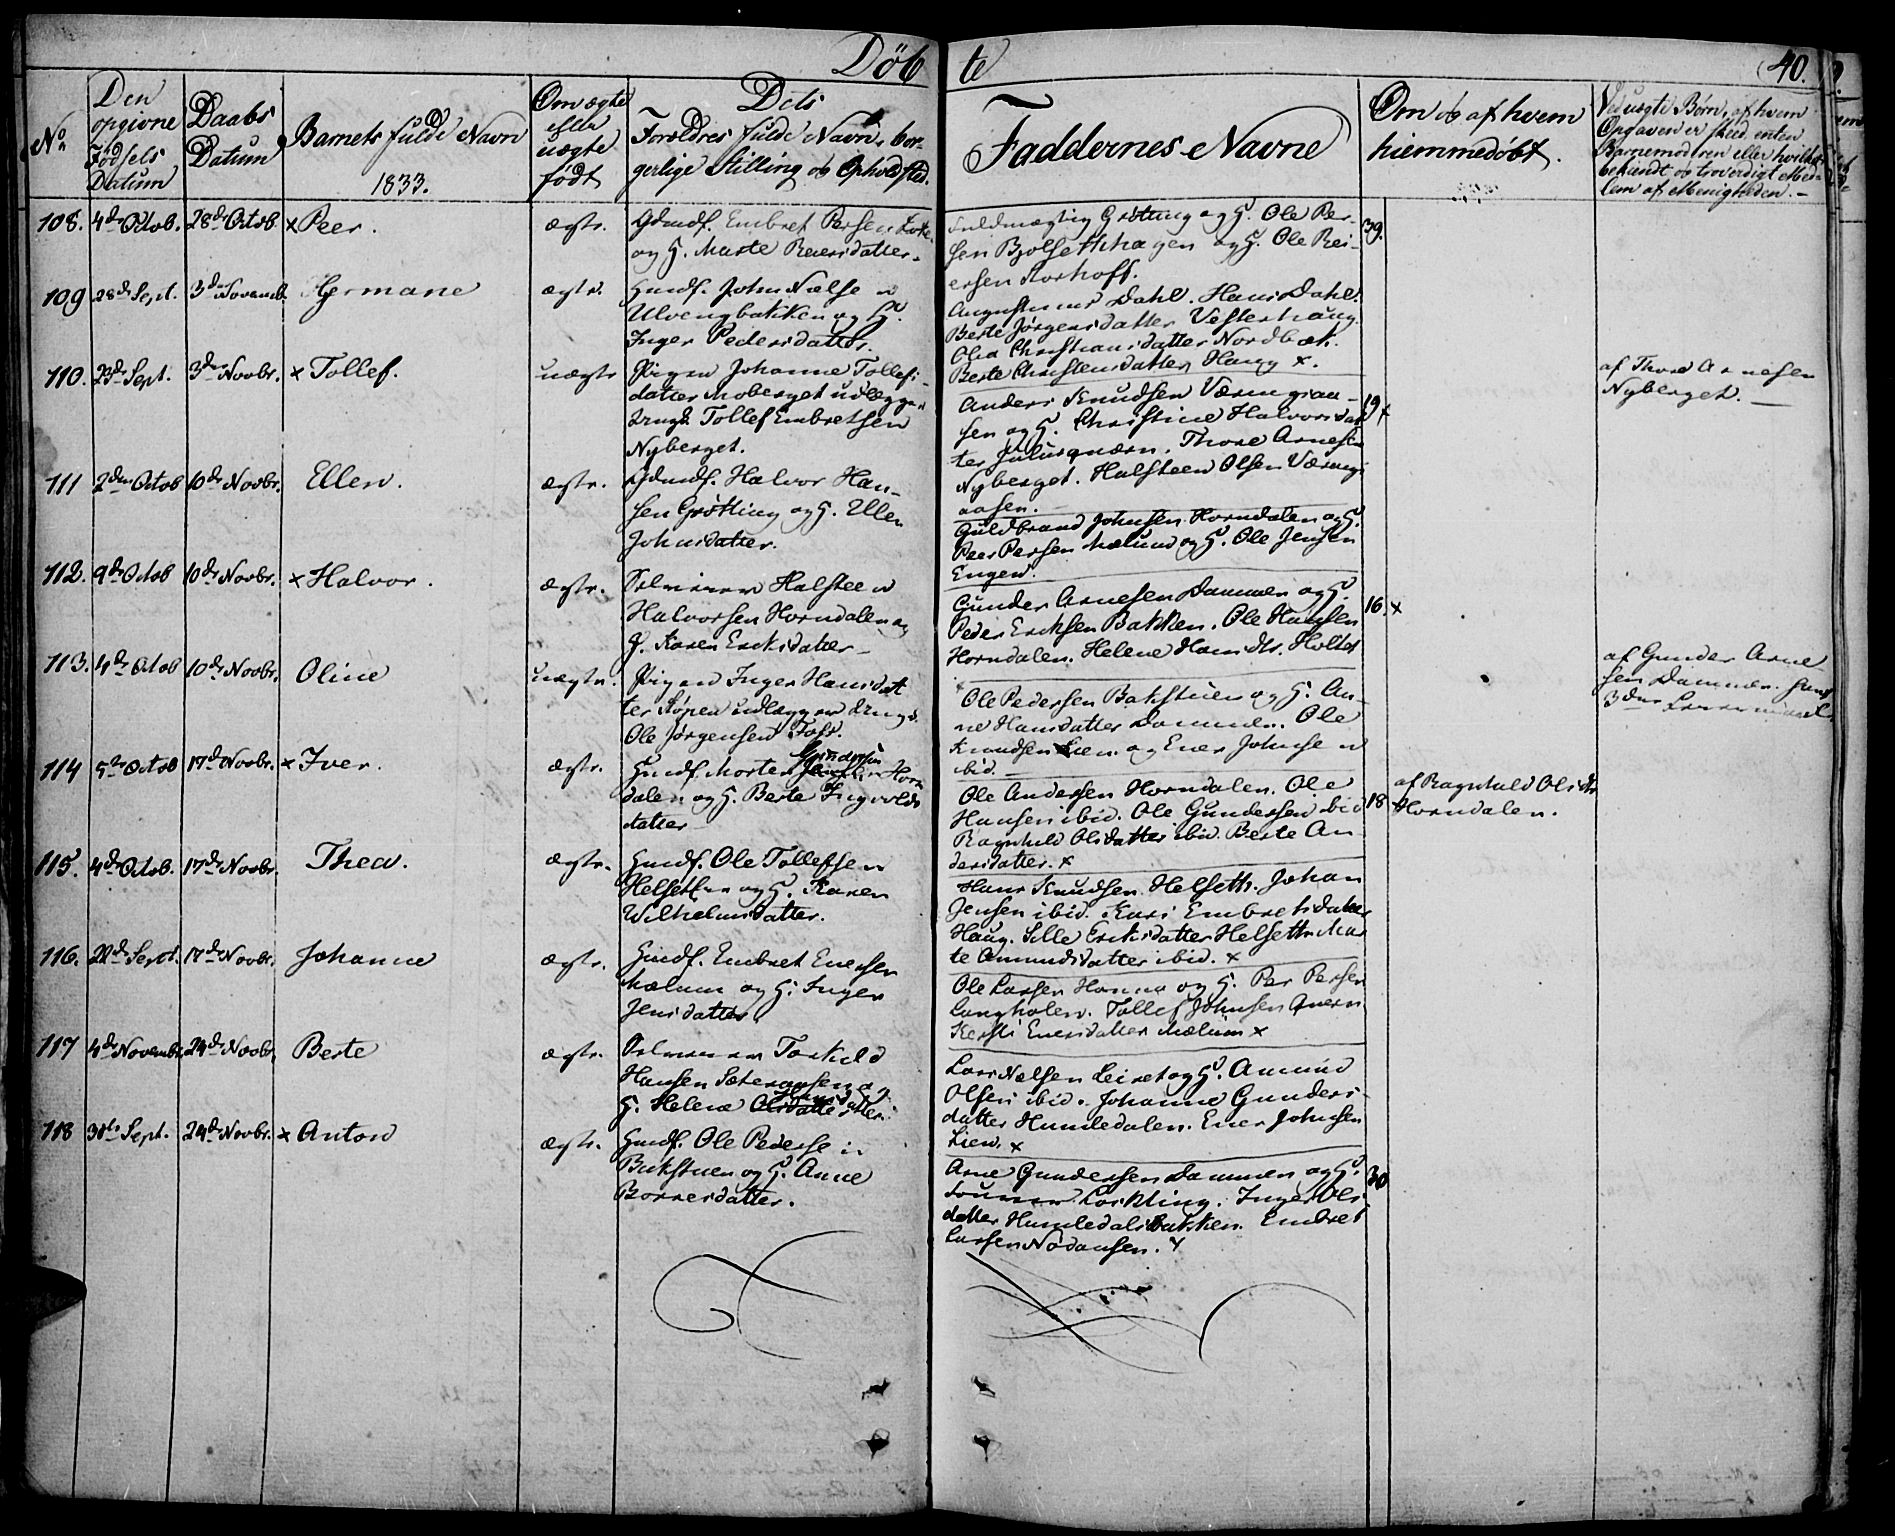 Döb te 40.
No
Den opgivne Fødsels Datum
Daabs Datum
Barnets fulde Navn
1833.
Om ægte eller uægte født
Dets Forældres fulde Navn, bor-
gerlige Stilling og Opholdsted.
Faddernes Navne
Om og af hvem
hiemmedøbt.
Ved uægte Børn, af hvem
Opgaven er skeed, enten
Barnemoderen eller hvilket
bekiendt og troverdigt Med-
lem af Menigheden.-
108. 4de Octob. 28de Octob. x Peer. ægte. Gdmdf. Embret Persen
og H. Marte Reiersdatter.
Fuldmægtig Grøtting og H. Ole Per-
sen Bjølsethhagen og H. Ole Rei-
ersen Storhoff.
39.
109 28de Sept. 3de Novemb. Hermane ægte. Huusmd. John Nielsen
Ulvengbakken og H.
Inger Pedersdatter.
Augustinus Dahl. Hans Dahl.
Berte Jørgensdatter Vesterhaug.
Olea Christiansdatter Nordbæk.
Berte Christensdatter Haug x.
110. 23de Sept. 3de Novbr. x Tollef. uægte Pigen Johanne Tollefs-
datter Moberget udlægger
Ungk. Tollef Embretsen
Nyberget.
Anders Knudsen Væringsaa-
sen og H. Christine Halvorsdat-
ter Julusqværn. Thore Arnesen
Nyberget. Halsteen Olsen Værings-
aasen.
19 x
af Thore Arnesen
Nyberget. -
111 2den Octob 10de Novbr. Ellen. ægte. Gdmdf. Halvor Han-
sen Grøtting og H. Ellen
Johnsdatter.
Guldbrand Johnsen Horndalen og H.
Peer Persen Mælum og H. Ole Jensen
Engen.
112. 9de Octob 10de Novbr. x Halvor. ægte. Selveier Halsteen
Halvorsen Horndalen og
H. Karen Ericksdatter
Gunder Arnesen Dammen og H.
Peder Ericksen Bakken. Ole Hansen
Horndalen. Helene Hansdtr. Holtet
16 x
113. 4de Octob 10de Novbr. Oline uægte. Pigen Inger Hansdat-
ter Løpen udlægger Ungk.
Ole Jørgensen Toft.
Ole Pedersen Bakstuen og H. An-
ne Hansdatter Dammen. Ole
Knudsen Lien og Ener Johnsen
ibid.
af Gunder Arne
sen Dammen. hans
3die Leiermaal
114 5te Octob 17de Novbr. x Iver. ægte. Huusmd. Morten Gundersen Horn-
dalen og H. Berte Ingvolds-
datter
Ole Andersen Horndalen. Ole
Hansen ibid. Ole Gundersen ibid
Ragnhild Olsdatter ibid Berte An-
dersdatter. x
18
af Ragnhild Olsdtr
Horndalen.
115. 4de Octob. 17de Novbr. Thea. ægte. Huusmd. Ole Tollefsen
Helseth og H. Karen
Wilhelmsdatter.
Hans Knudsen Helseth. Johan
Jensen ibid. Kari Embretsdatter
Haug. Sille Ericksdatter Helseth. Mar-
te Amundsdatter ibid. x
116. 22de Sept. 17de Novbr. Johanne ægte. Huusmd. Embret Enersen
Mælum og H. Inger
Jensdatter.
Ole Larsen Hanna og H. Per Persen
Langholen. Tollef Johnsen Qvern
Kersti Enersdatter Mælum x
117 4de Novembr 24de Novbr. Berte ægte. Selveier Torkild
Hansen Sæteraasen og
H. Helene Olsdatter
Lars Nielsen Leiret og H. Amund
Olsen ibid. Johanne Gunders-
datter Humledalen. Ener Johnsen
Lien. x
118 30te Sept. 24de Novbr. x Anton ægte. Huusmd. Ole Pedersen
Bakstuen og H. Anne
Borresdatter.
Arne Gundersen Dammen og H.
Inger Ols-
datter Humledalsbakken. Embret
Larsen Nødaasen. x
30